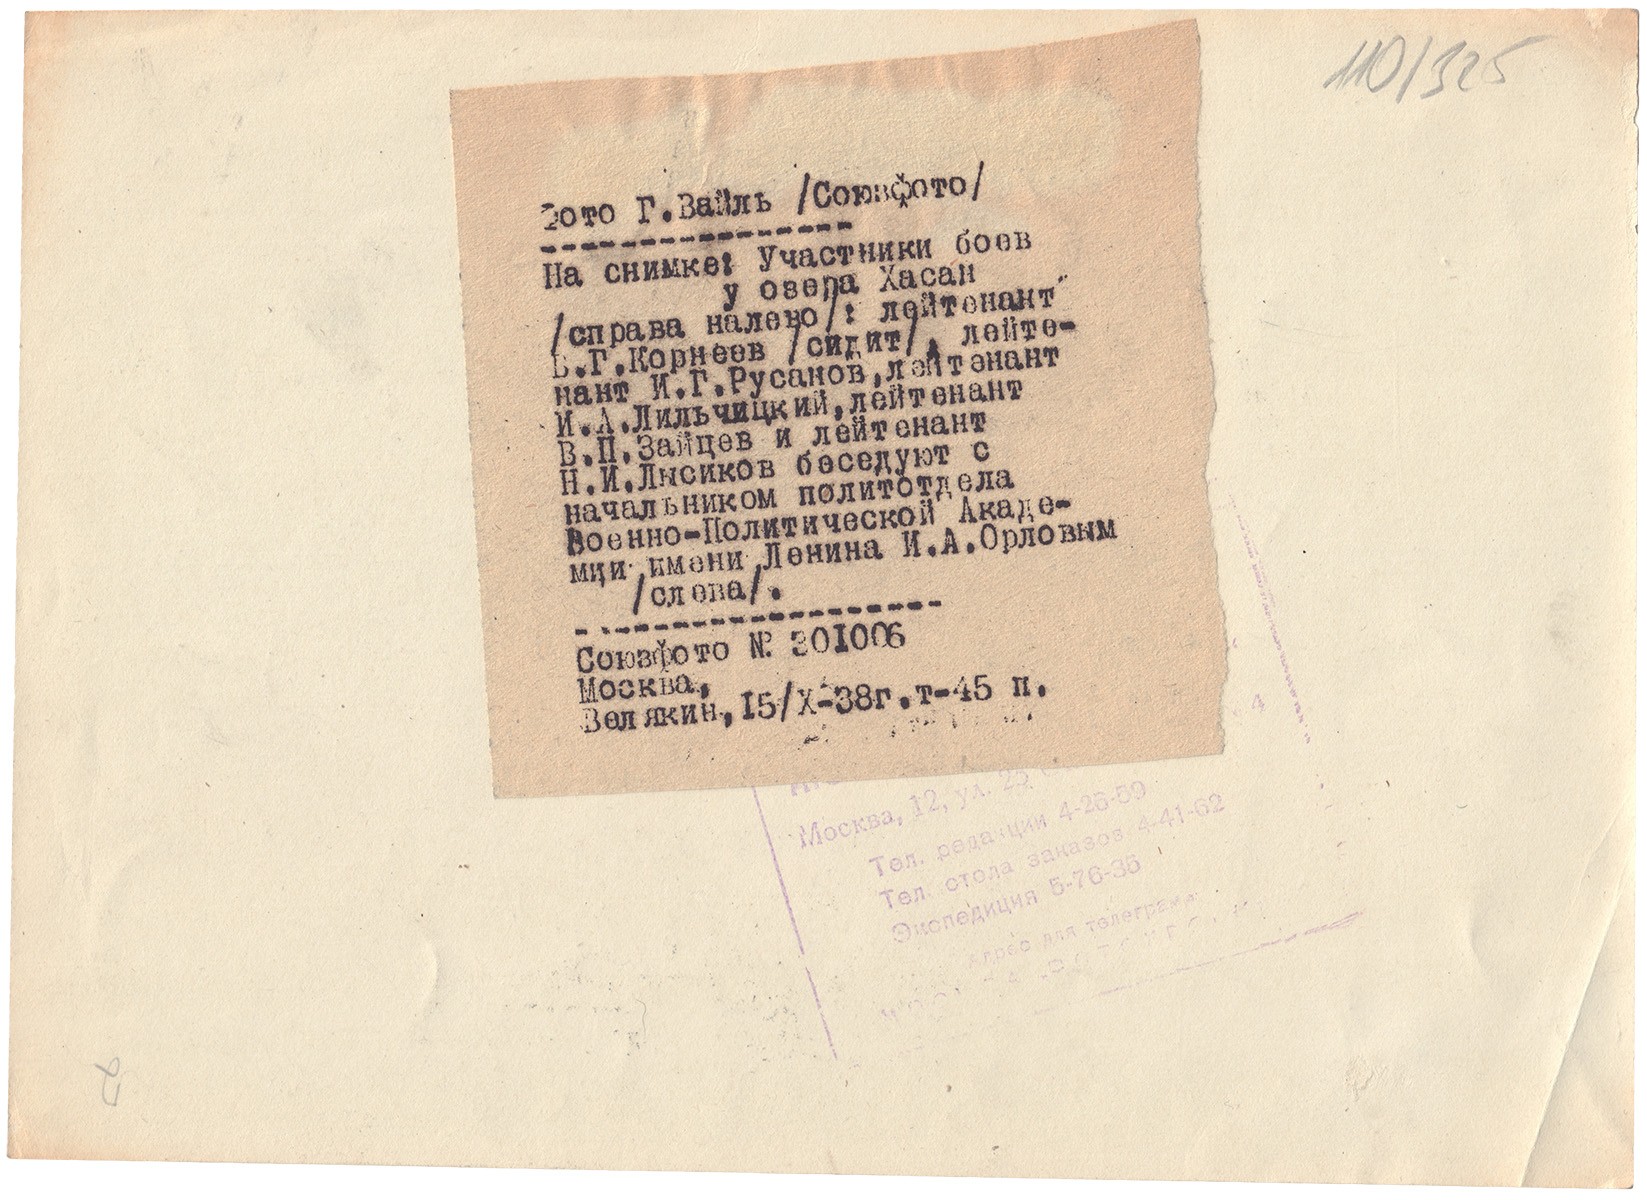 110/325
Фото Г.Вайль /Союзфото/
На снимке: Участники боев
у озера Хасан
/справа налево/: лейтенант
В.Г.Корнеев /сидит/, лейте-
нант И.Г.Русанов,лейтенант
И.А.Лильчицкий,лейтенант
В.П.Зайцев и лейтенант
Н.И.Лысиков беседуют с
начальником политотдела
Военно-Политической Акаде-
мии имени Ленина И.А.Орловым
/слева/.
Союзфото № 301006
Москва,
Велякин,15/X-38г.т-45 п.
4
Москва, 12, ул. 25
Тел. редакции 4-26-59
Тел. стола заказов 4-41-62
Экспедиция 5-76-35
Адрес для телеграмм